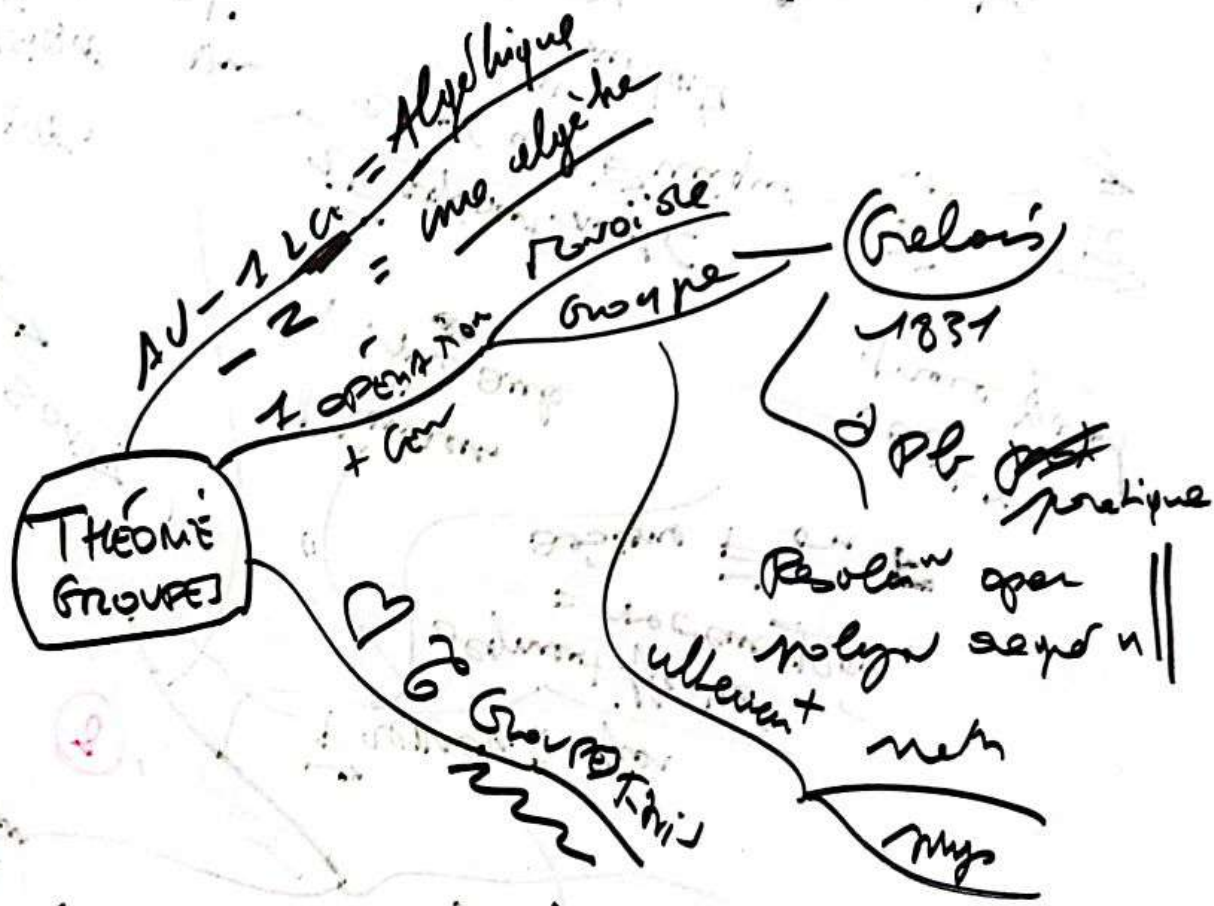 THÉORIE
GROUPES
AU - 1 LCI = Algébrique
- 2 = une algèbre
1 OPÉRATION
+ Gen
Monoïde
Groupe
Galois
~1831
Pb
pratique
polyn degré n
ultérieurt
math
phys
GROUPES FINIS